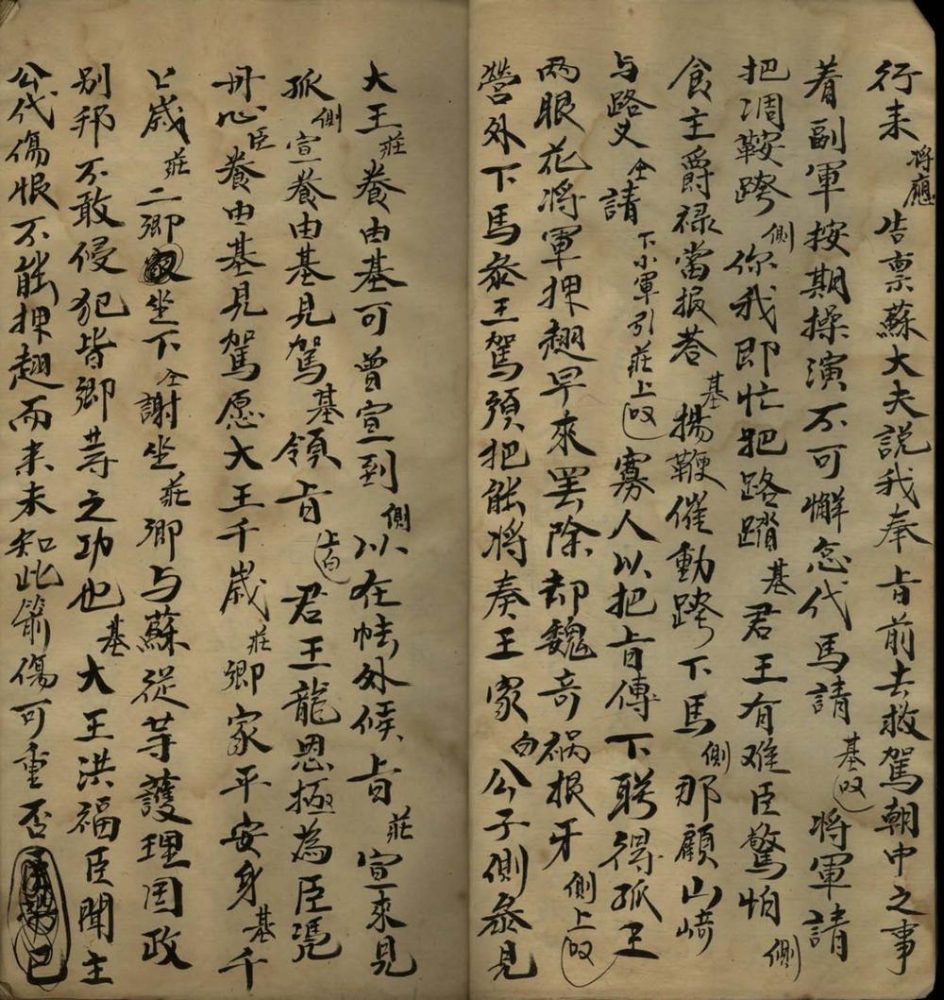 行来将應告禀蘇大夫説我奉旨前去救駕朝中之事
着副軍按期操演不可懈怠代馬請基㕝将軍請
把凋鞍跨側你我即忙把路踏基君王有难臣驚怕側
食主爵禄當报荅基揚鞭催動跨下馬側那顧山崎
与路乂仝請下小軍引莊上㕝寡人以把旨傳下聍得孤王
兩眼花将軍押趙早來罢除却魏竒禍根牙側上㕝
營外下馬叅王駕須把能将奏王家白公子側叅見
大王莊養由基可曾宣到側以在帐外候旨莊宣來見
孤側宣養由基見駕基領旨上白君王龍恩極為臣凴
丹心臣養由基見駕愿大王千歲莊卿家平安身基千
歲莊二卿坐下仝謝坐莊卿与蘇從䓁護理国政
别邦不敢侵犯皆卿䓁之功也基大王洪福臣聞主
公代傷恨不能押趙而来未知此箭傷可重否